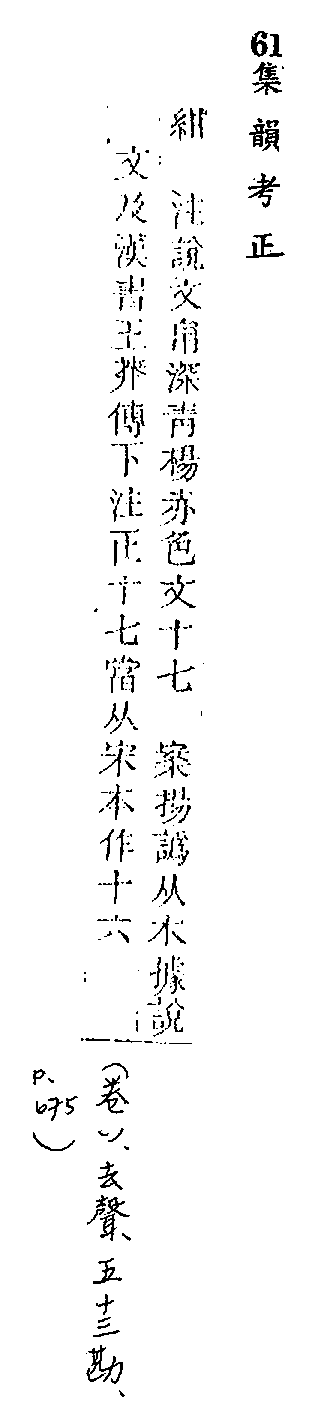 61集韻考正
紺 注說文帛深青楊赤色文十七 案揚譌从木據說
文及漢書王莽傳下注正十七當从宋本作十六
(卷八、去聲、五十三勘、
p. 675)